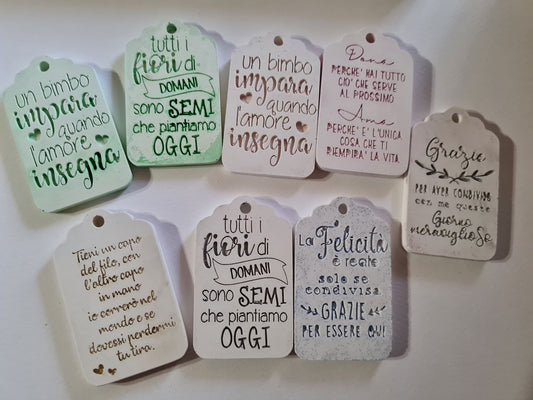 un bimbo
impara
quando
l'amore
insegna
tutti i
fiori di
DOMANI
sono SEMI
che piantiamo
OGGI
un bimbo
impara
quando
l'amore
insegna
Dona
PERCHE' HAI TUTTO
CIO' CHE SERVE
AL PROSSIMO
Ama
PERCHE' E' L'UNICA
COSA CHE TI
RIEMPIRA' LA VITA
Grazie
PER AVER CONDIVISO
con me questo
Giorno
meraviglioso
Tieni un capo
del filo, con
l'altro capo
in mano
io correrò nel
mondo e se
dovessi perdermi
tu tira.
tutti i
fiori di
DOMANI
sono SEMI
che piantiamo
OGGI
La Felicità
è reale
solo se
condivisa
GRAZIE
PER ESSERE QUI